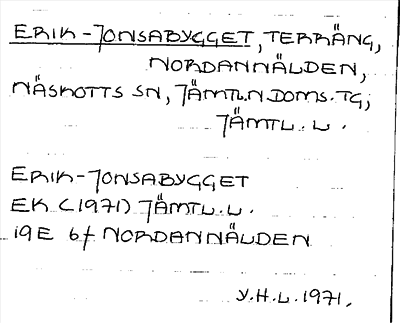 ERIK-JONSABYGGET, TERRÄNG,
NORDANNÄLDEN,
NÄSKOTTS SN, JÄMTL.N.DOMS.TG,
JÄMTL.L.
ERIK-JONSABYGGET
EK (1971) JÄMTL.L.
19E 6f NORDANNÄLDEN
Y.H.L.1971.